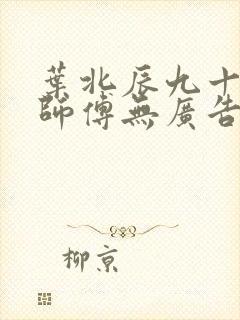 葉北辰九十
師傅無廣告
柳京